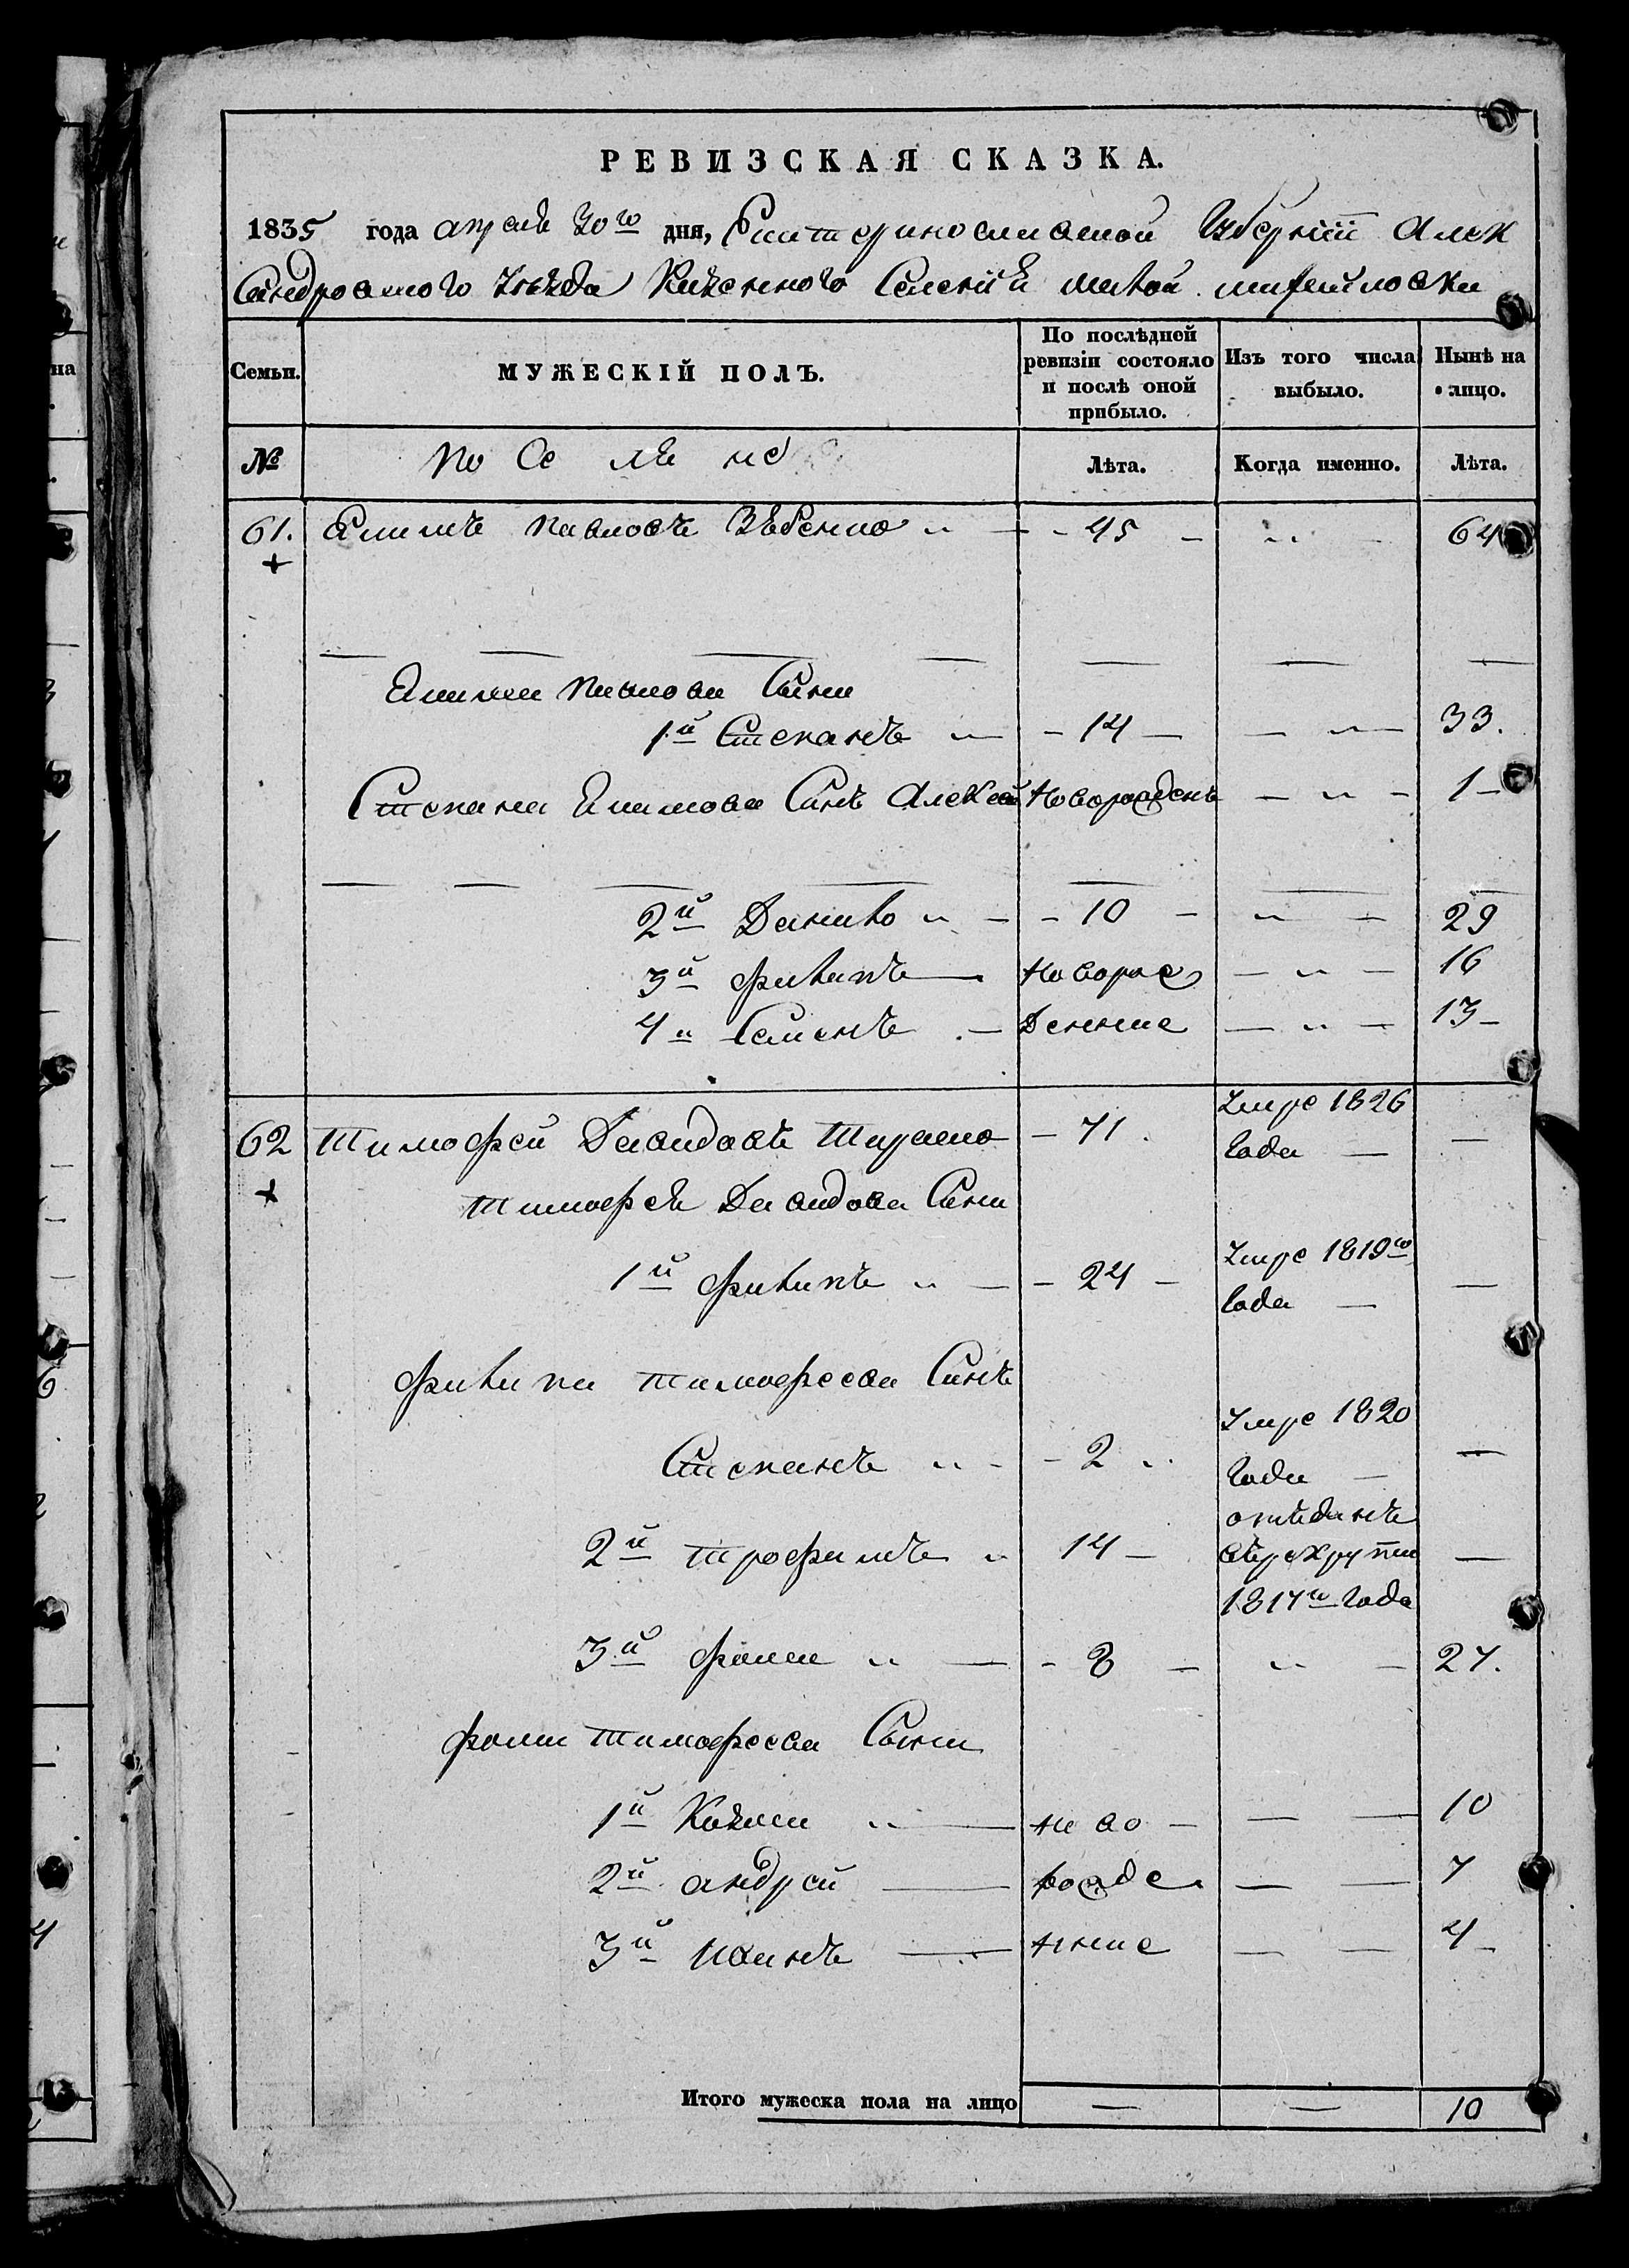 РЕВИЗСКАЯ СКАЗКА.
1835 года апреля 30го дня, Екатеринославской Губернiи Алек
сандровского Уѣзда Казенного Селенiя малой михайловки
Семьи. МУЖЕСКIЙ ПОЛЪ. По послѣдней ревизiи состояло и послѣ оной прибыло. Изъ того числа выбыло. Нынѣ на лицо.
№ поселяне Лѣта. Когда именно. Лѣта.
61. Акимъ павловъ - 45 - 64
Акима павлова Сыни
1й Степанъ - 14 - 33.
Степана Акимова Синъ Алексей Новорожденъ 1 -
2й Данило - 10 - 29
3й филипъ Новорож 16
4й Семенъ Денние 13 -
62 Тимофей Давидовъ - 71. Умре 1826
года —
Тимофея Давидова Сини
1й филипъ - 24 - Умре 1819го
года —
филипа тимофеева Синъ
Степанъ - 2 Умре 1820
года —
2й трофимъ 14 - отъданъ
върекруты
1817го года
3й фома - 8 - 27.
фоми тимофеева Сыни
1й Козма ново - 10
2й андрей рожде 7
3й иванъ нние 4 -
Итого мужеска пола на лицо — — 10